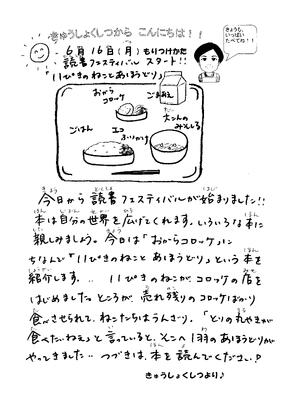 きゅうしょくしつから こんにちは！！
きょうも、
いっぱい
たべてね！！
6月16日（月）もりつけかた
読書フェスティバル スタート！！
「11ぴきのねことあほうどり」
おから
コロッケ
ごまあえ
ごはん
エコ
ふりかけ
だいこんの
みそしる
今日から 読書フェスティバルが始まりました!!
本は自分の世界を広げてくれます。いろいろな本に
親しみましょう。今日は「おからコロッケ」に
ちなんで『11ぴきのねこと あほうどり』という本を
紹介します。‥ 11ぴきのねこが、コロッケの店を
はじめました。ところが、売れ残りのコロッケばかり
食べさせられて、ねこたちはうんざり。「とりの丸やきが
食べたいねえ」と言っていると、そこへ1羽のあほうどりが
やってきました‥ つづきは、本を読んでください♪
きゅうしょくしつより♪